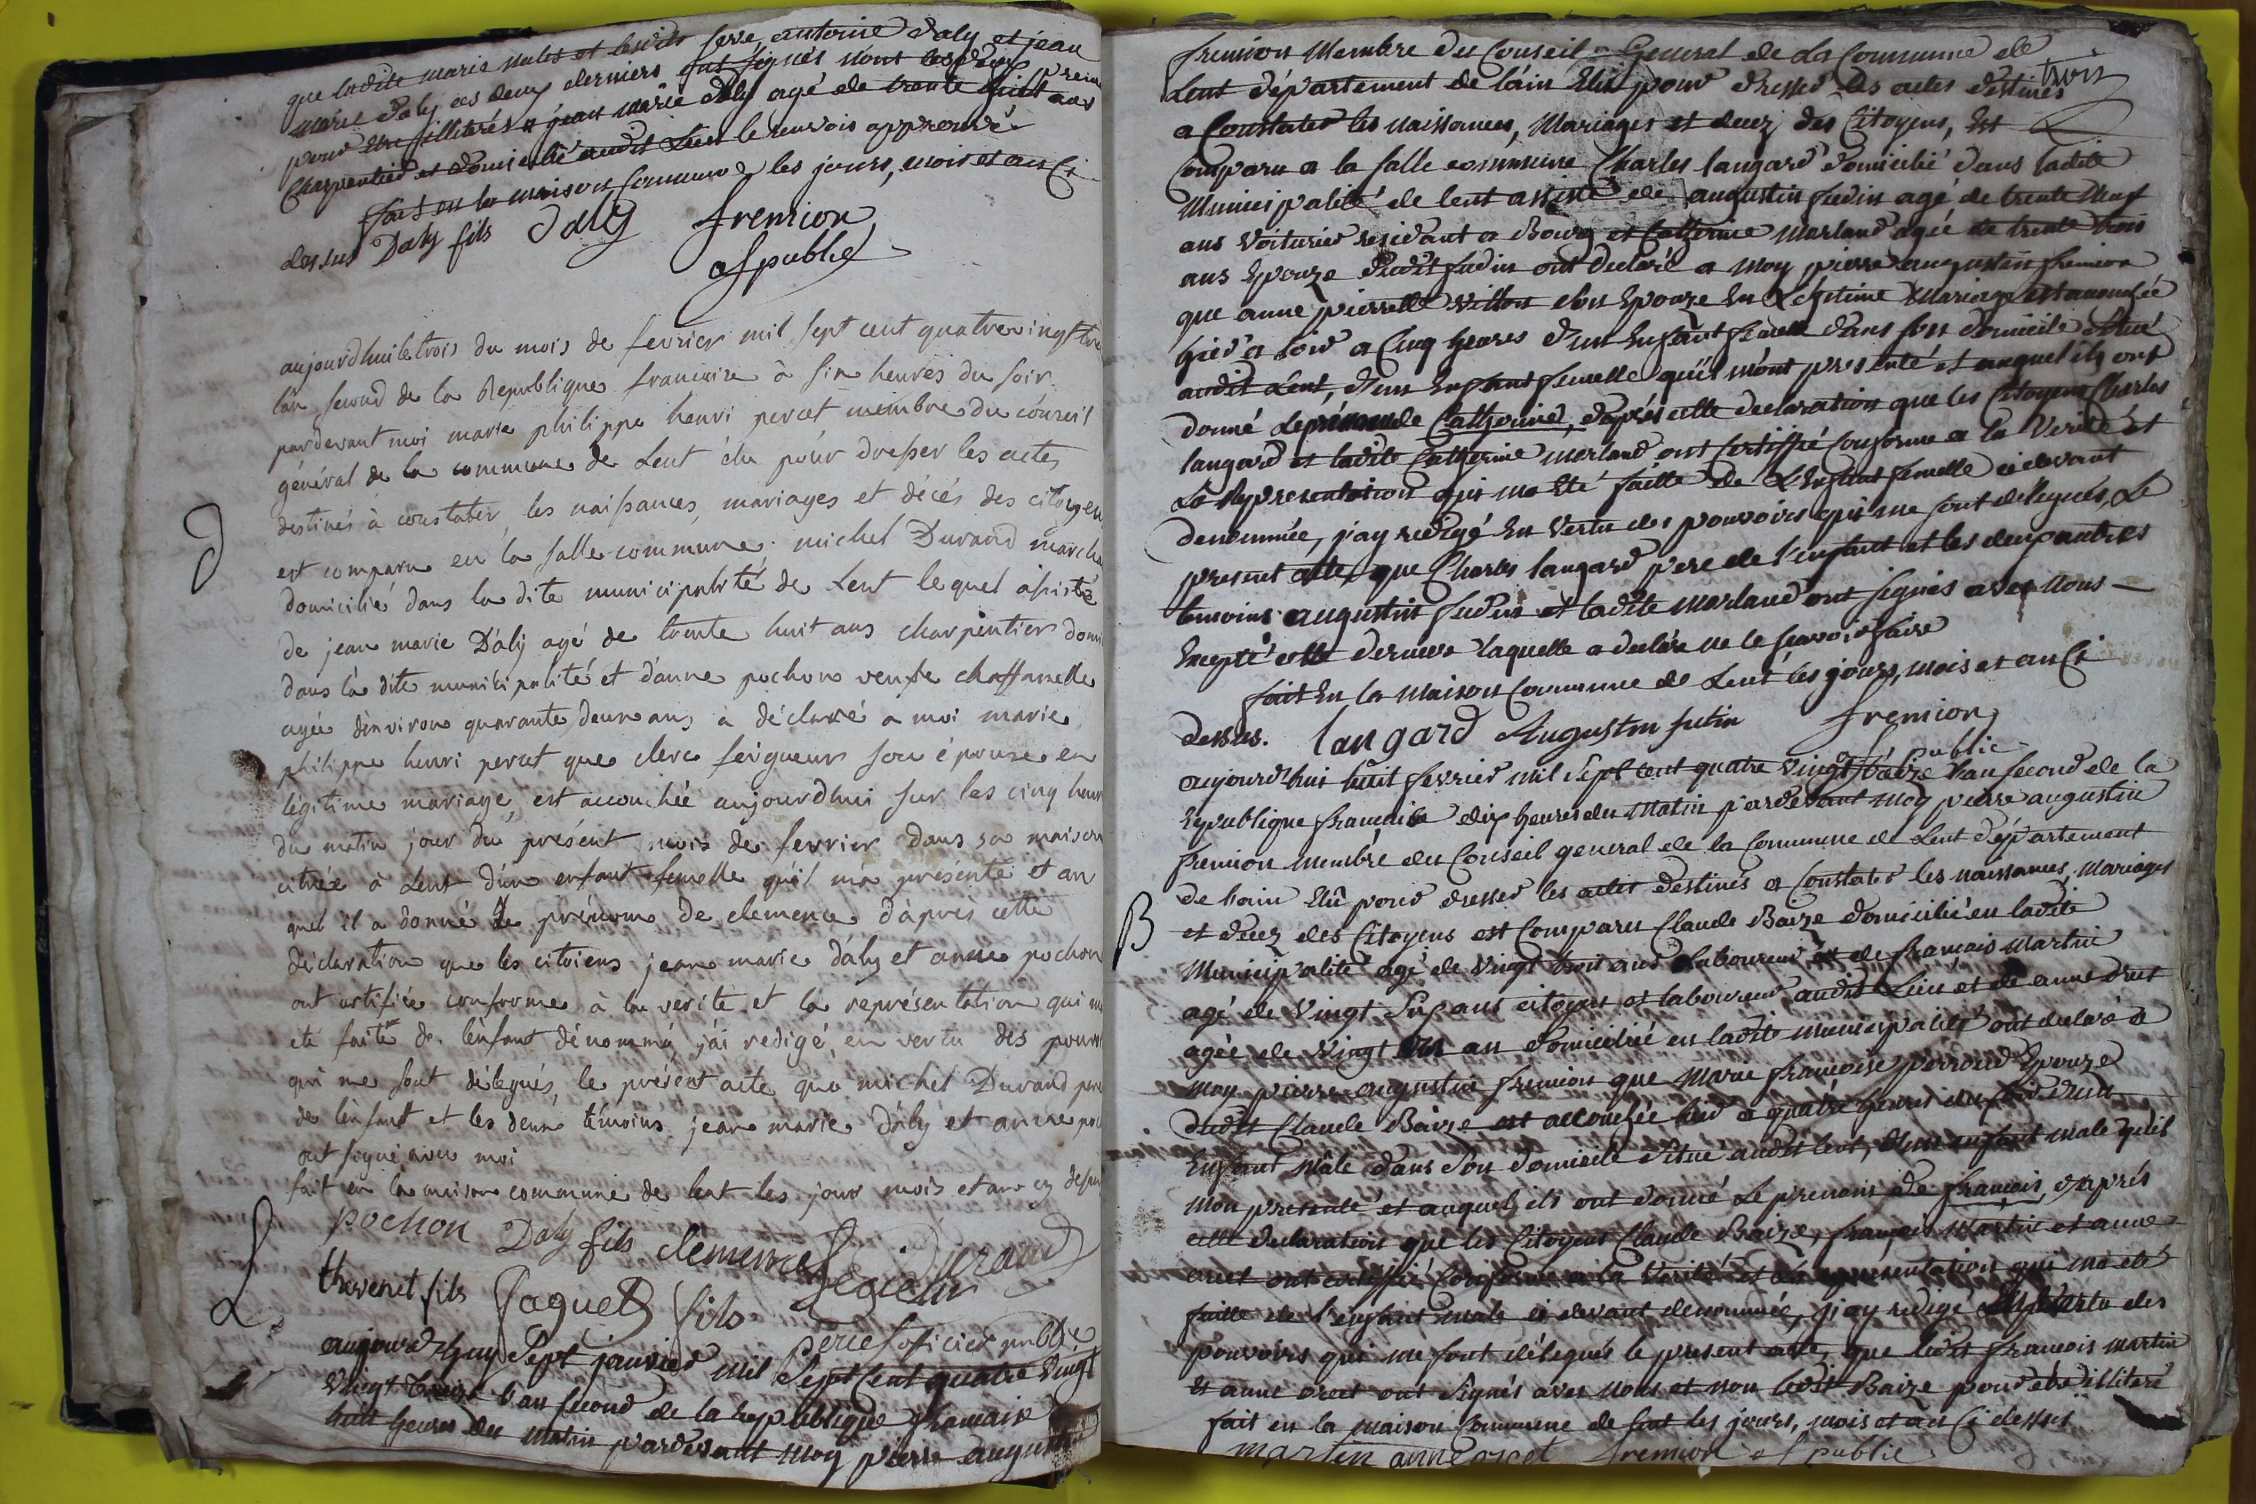 que ladite marie nalet et lesdits feve, antoine daly et jean
marie daly ces deux derniers ont signés non les deux premiers
pour etre illiterés jean marie daly agé de trente huit ans
Charpentier et domicilié audit Lent le renvois approuvé
fait en la maison Commune les jours, mois et an Ci
dessus Daly fils Daly fremion
of public
aujourdhui le trois du mois de fevrier mil sept cent quatre vingt tre
l'an second de la Republique francaise à six heures du soir
pardevant moi marie philippe henri percet membre du conseil
général de la commune de Lent élu pour dresser les actes
destinés à constater les naissances, mariages et décés des citoyen
est comparu en la salle commune michel Durand march
domicilié dans la dite municipalité de Lent lequel assisté
de jean marie Daly agé de trente huit ans charpentier domi
dans la dite municipalité et danne pochon veuve chaffanelle
agée d'environ quarante deux ans à déclaré à moi marie
philippe henri percet que clere seigneur son épouse en
légitime mariage, est accouchée aujourdhui sur les cinq heur
du matin jour du présent mois de fevrier dans sa maison
située à Lent d'un enfant femelle qu'il ma présenté et au
quel il a donné le prénom de clemence d'après cette
déclaration que les citoiens jean marie daly et anne pochon
ont certifiée conforme à la verité et la représentation qui m
été faite de l'enfant dénommé, j'ai redigé, en vertu des pouvoi
qui me sont délégués, le présent acte que michel Durand pere
de l'enfant et les deux témoins jean marie d'aly et anne po
ont signé avec moi
fait en la maison commune de lent les jour mois et an cy dessu
pochon Daly fils clemence Seigneur Durand
thevenet fils Jaquet fils
percet officier public
aujourdhuy Sept janvier mil Sept Cent quatre Vingt
Vingt treize l'an second de la republique francaise
huit heures du matin pardevant moy pierre augustin
fremion Membre du Conseil General de La Commune de
Lent département de l'ain Elu pour dresser les actes destinés trois
a Constater les naissances, Mariages et decez des Citoyens, Est
Comparu a la salle commune Charles langard domicilié dans ladite
Municipalité de lent assisté de augustin fudin agé de trente neuf
ans Voiturier residant a Bourg et Catherine morland agée de trente trois
ans Epouze dudit fudin ont declaré a Moy pierre augustin fremion
que anne pierrette Villon son Epouze En Légitime Mariage est accouchée
hier a soir a Cinq heures d'un Enfant femelle dans son domicile situé
audit Lent, d'un Enfant femelle qu'il m'ont presenté et auquel ils ont
donné le prénom de Catherine, d'après cette declaration que les Citoyens Charles
langard et ladite Catherine morland ont Certiffié Conforme a la Verité et
La Representation qui ma Eté faitte de L'Enfant femelle ci devant
denommée, j'ay redigé En Vertu des pouvoirs qui me sont delegués, Le
present acte, que Charles langard pere de l'enfant et les deux autres
temoins augustin fudin et ladite morland ont signés avec nous
Excepté cette derniere laquelle a declaré ne le scavoir faire
fait En la Maison Commune de Lent les jours, mois et an Ci
dessus. langard Augustin futin fremion
public
aujourd'hui huit fevrier mil Sept Cent quatre Vingt treize l'an second de la
Republique francaise dix heures du Matin pardevant Moy pierre augustin
fremion membre du Conseil general de la Commune de Lent departement
de l'ain Elû pour dresser les actes destinés a Constater les naissances, Mariages
B
et decez des Citoyens est Comparu Claude Baize domicilié en ladite
Municipalité agé de Vingt huit ans Laboureur et de francois Martin
agé de Vingt Six ans citoyen et laboureur audit Lieu et de anne
agée de Vingt un an domiciliée en ladite municipalité ont declaré a
Moy pierre augustin fremion que Marie francoise perroud Epouze
dudit Claude Baize est accouchée hier a quatre heures du soir d'un
Enfant Mâle dans son domicile Situe audit lent, d'un enfant male qu'il
m'ou presenté et auquel ils ont donné Le prenom de francois, d'aprés
cette declaration que les Citoyens Claude Baize, francois Martin et anne
ont certiffié Conforme a la Verité et la representation qui ma été
faitte de l'enfant male ci devant denommée, j'ay redigé en vertu des
pouvoirs qui me sont délegués le present acte, que ledit francois Martin
et anne ont signés avec nous et non ledit Baize pour etre illiteré
fait en la maison Commune de lent les jours, mois et an Ci dessus
martin anne fremion of public